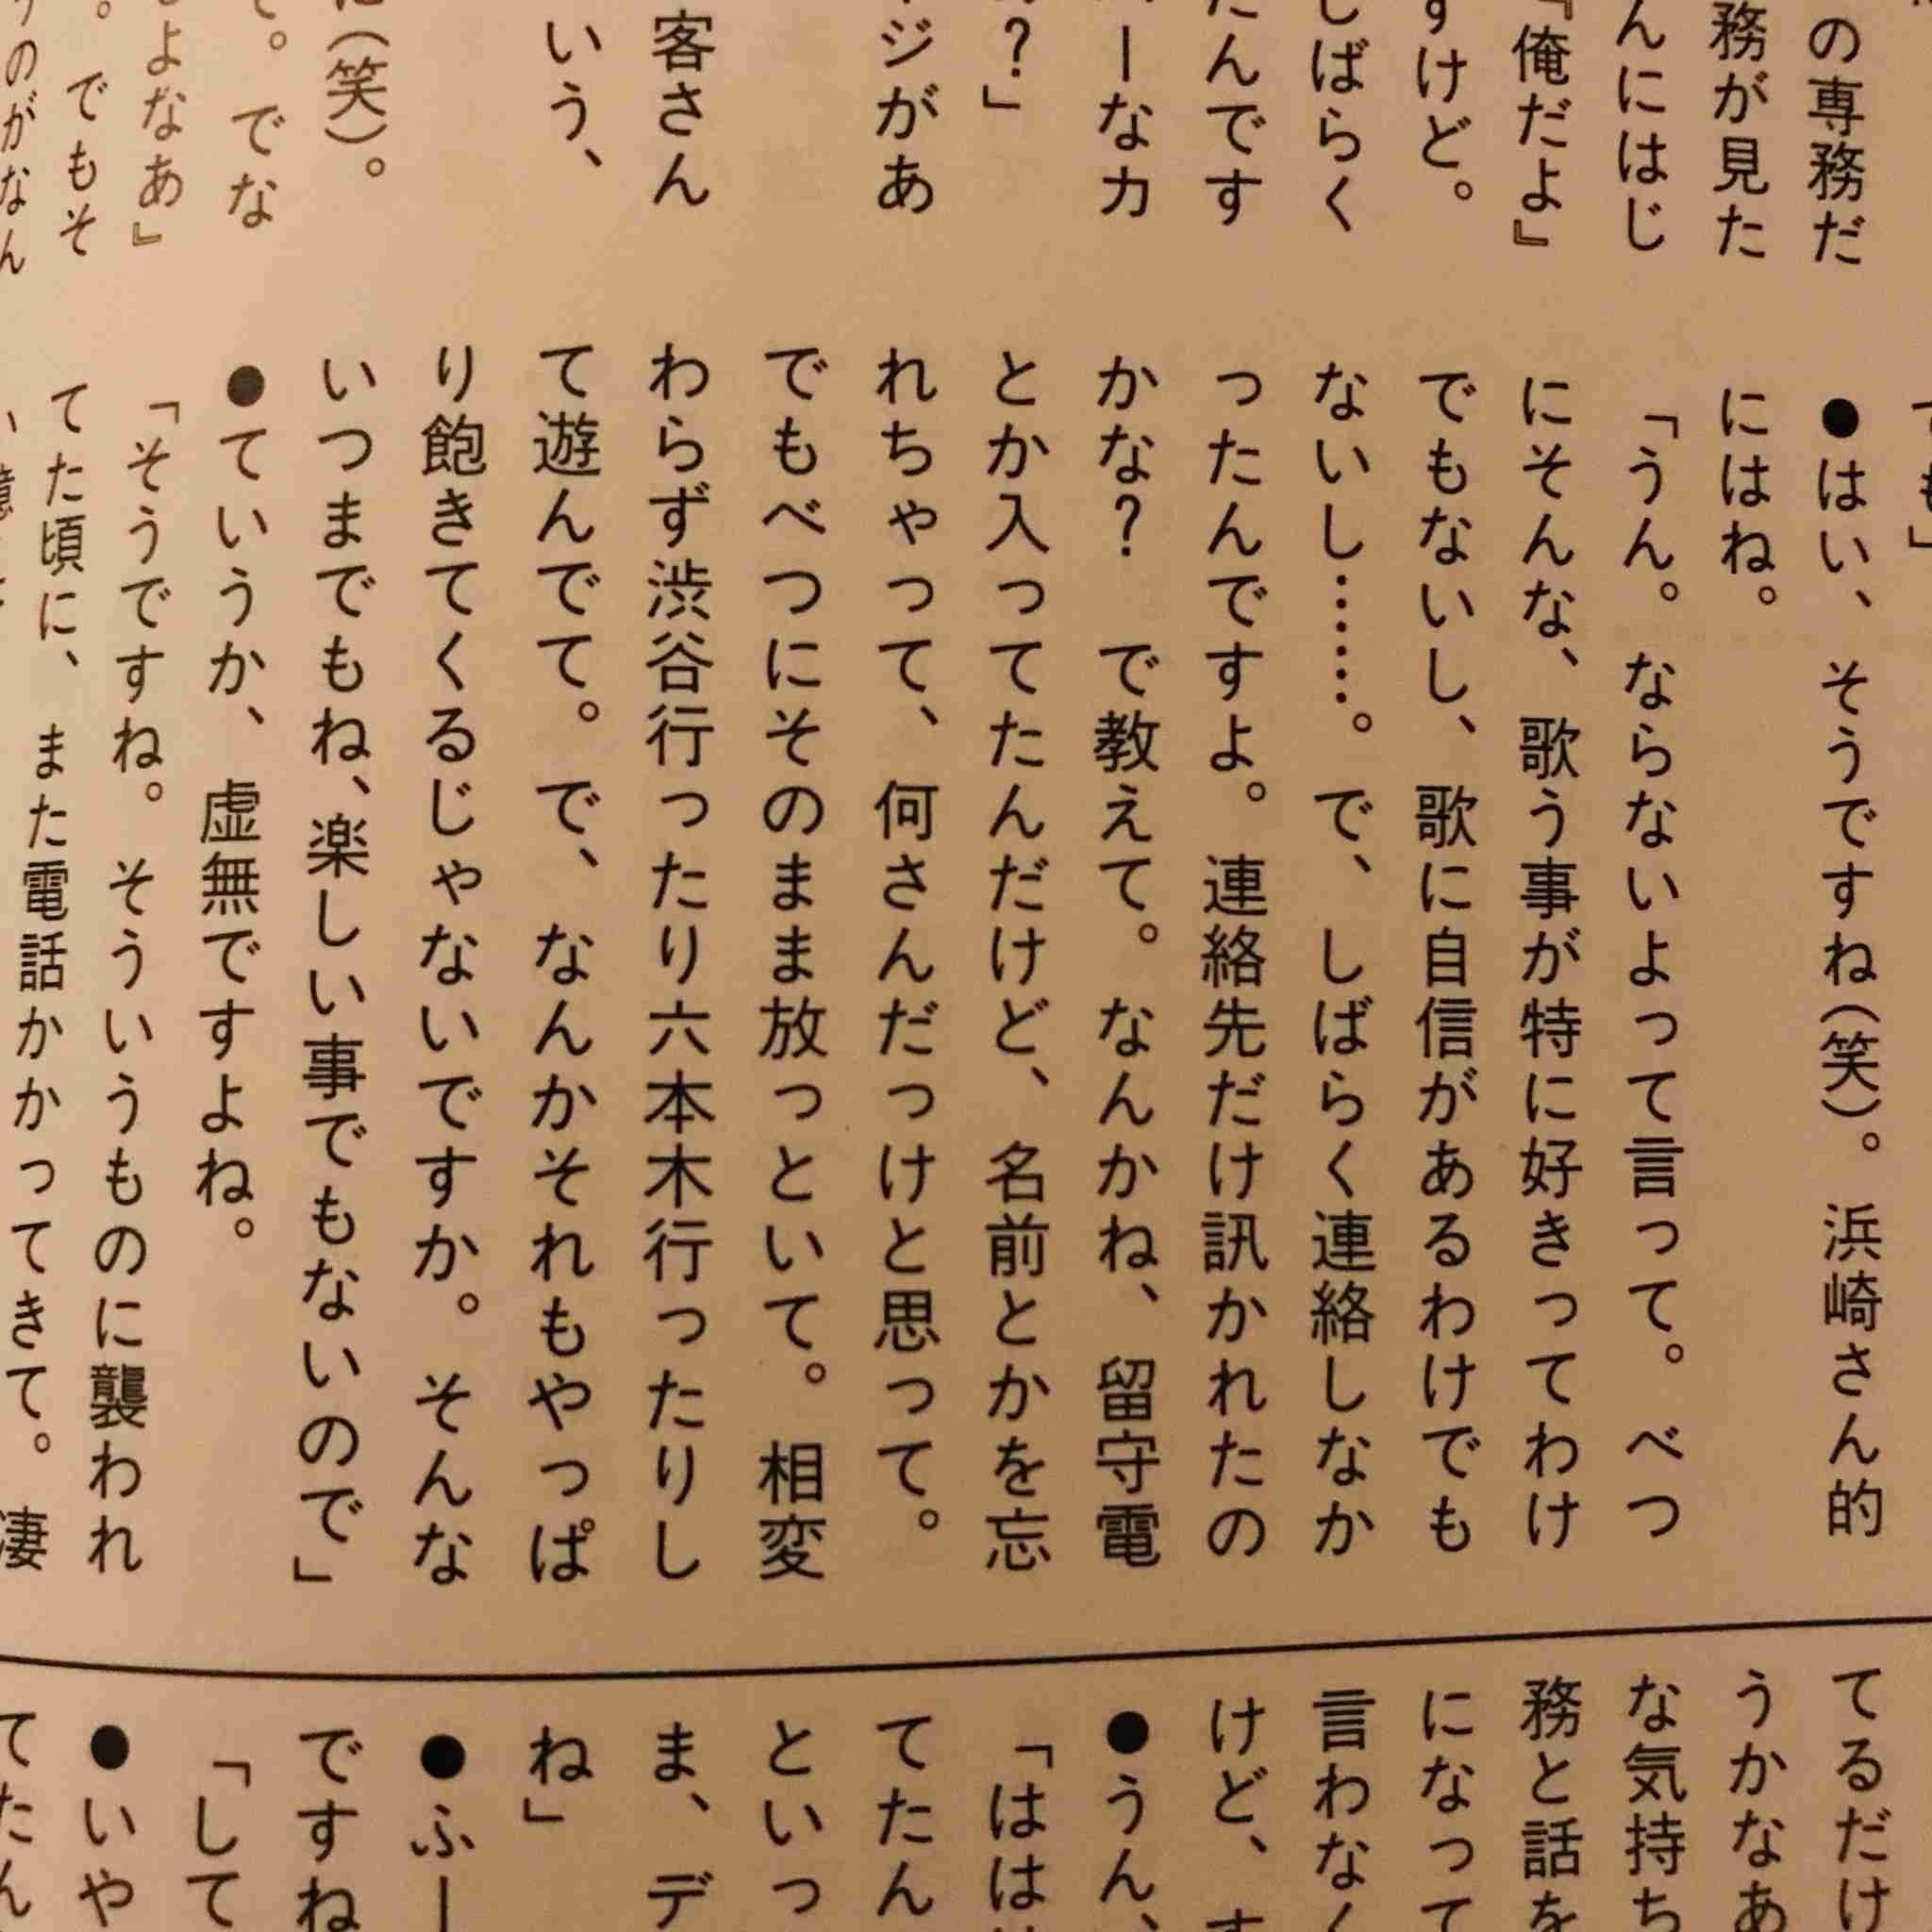 の専務だ
務が見た
んにはじ
『俺だよ』
すけど。
しばらく
たんです
ーなカ
？」
ジがあ
客さん
いう、
に（笑）。
て。でな
よなあ』
。でもそ
うのがなん
ても」
●はい、そうですね（笑）。浜崎さん的
にはね。
「うん。ならないよって言って。べつ
にそんな、歌う事が特に好きってわけ
でもないし、歌に自信があるわけでも
ないし……。で、しばらく連絡しなか
ったんですよ。連絡先だけ訊かれたの
かな？　で教えて。なんかね、留守電
とか入ってたんだけど、名前とかを忘
れちゃって、何さんだっけと思って。
でもべつにそのまま放っといて。相変
わらず渋谷行ったり六本木行ったりし
て遊んでて。で、なんかそれもやっぱ
り飽きてくるじゃないですか。そんな
いつまでもね、楽しい事でもないので」
●ていうか、虚無ですよね。
「そうですね。そういうものに襲われ
てた頃に、また電話かかってきて。凄
てるだけ
うかなあ
な気持ち
務と話を
になって
言わなく
けど、す
●うん、
「ははは
てたん
といっ
ま、デ
ね」
●ふー
ですね
「して
●いや
てたん